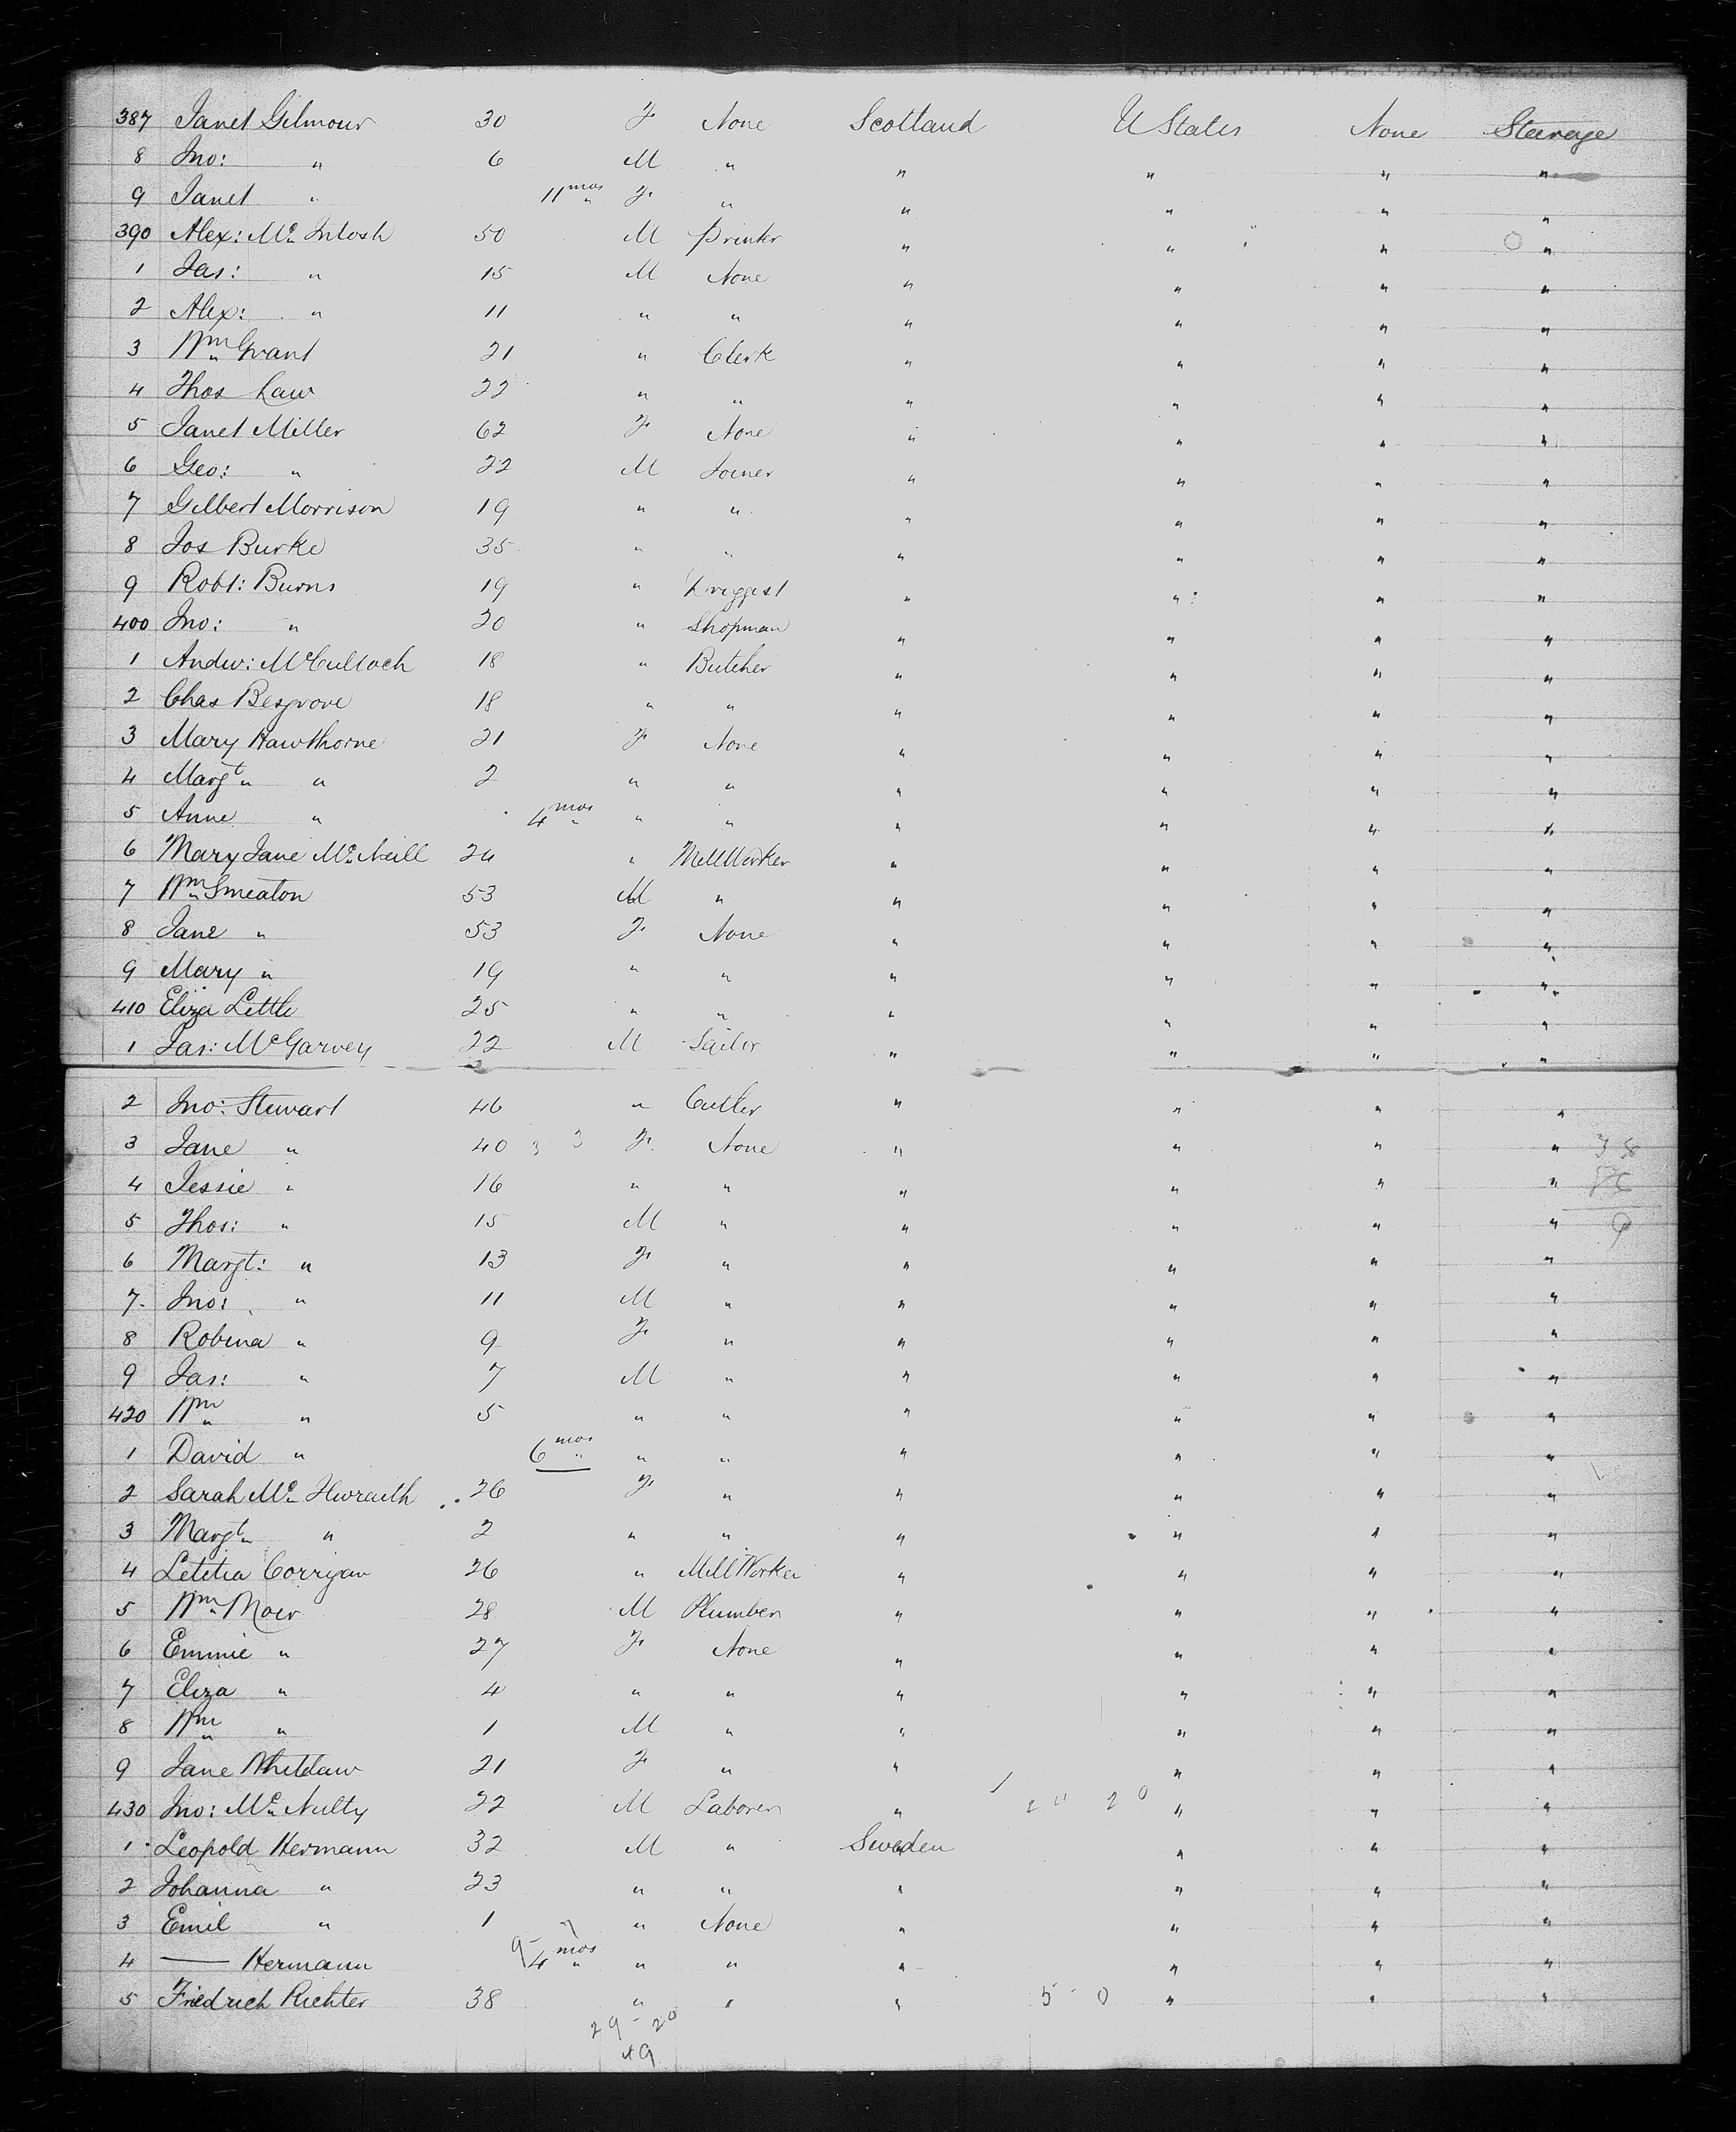 387 Janet Gilmour 30 F. None Scotland U States None Steerage
8 Jno: " 6 M " " " " "
9 Janet " 11 mos F. " " " " "
390 Alex: Mc Intosh 50 M Printer " " " "
1 Jas: " 15 M None " " " "
2 Alex: " 11 " " " " " "
3 Wm Grant 21 " Clerk " " " "
4 Thos Law 22 " " " " " "
5 Janet Miller 62 F. None " " " "
6 Geo: " 22 M Joiner " " " "
7 Gilbert Morrison 19 " " " " " "
8 Jos Burke 35 " " " " " "
9 Robt: Burns 19 " Druggist " " " "
400 Jno: " 20 " Shopman " " " "
1 Andw: McCulloch 18 " Butcher " " " "
2 Chas Besgrove 18 " " " " " "
3 Mary Hawthorne 21 F. None " " " "
4 Margt " 2 " " " " " "
5 Anne " 4 mos " " " " " "
6 Mary Jane Mc Neill 24 " Mill Worker " " " "
7 Wm Smeaton 53 M " " " " "
8 Jane " 53 F. None " " " "
9 Mary " 19 " " " " " "
410 Eliza Little 25 " " " " " "
1 Jas: McGarvey 22 M Sailor " " " "
2 Jno: Stewart 46 " Cutler " " " "
3 Jane " 40 3 3 F. None " " " " 38
4 Jessie " 16 " " " " " "
5 Thos: " 15 M " " " " " 9
6 Margt: " 13 F. " " " " "
7. Jno: " 11 M " " " " "
8 Robina " 9 F. " " " " "
9 Jas: " 7 M " " " " "
420 Wm " 5 " " " " " "
1 David " 6 mos " " " " " "
2 Sarah Mc 26 F. " " " " "
3 Margt " 2 " " " " " "
4 Letitia Corrigan 26 " Mill Worker " " " "
5 Wm Moir 28 M Plumber " " " "
6 Emmie " 27 F. None " " " "
7 Eliza " 4 " " " " " "
8 Wm " 1 M " " " " "
9 Jane Whitelaw 21 F. " " " " "
430 Jno: Mc Nulty 22 M Laborer " 20 20 " " "
1 Leopold Hermann 32 M " Sweden " " "
2 Johanna " 23 " " " " " "
3 Emil " 1 " None " " " "
4 — Hermann 4 mos " " " " " "
5 Friedrich Richter 38 " " " 5 - 0 " " "
29 - 20
49